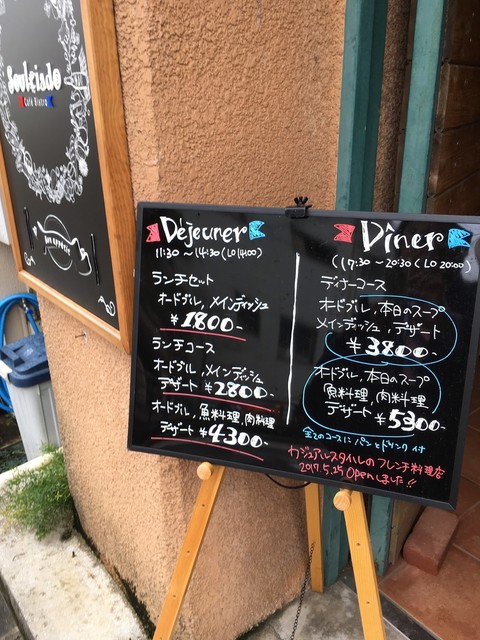 Souleiado
Café Bistro
bon appétit
Déjeuner
11:30 ~ 14:30 (LO 14:00)
ランチセット
オードブル, メインディッシュ
¥1800-
ランチコース
オードブル, メインディッシュ
デザート ¥2800-
オードブル, 魚料理, 肉料理
デザート ¥4300-
Dîner
(17:30 ~ 20:30 (LO 20:00)
ディナーコース
オードブル, 本日のスープ
メインディッシュ, デザート
¥3800-
オードブル, 本日のスープ
魚料理, 肉料理
デザート ¥5300
全てのコースにパンとドリンク付
カジュアルスタイルのフレンチ料理店
2017.5.25 Openしました!!